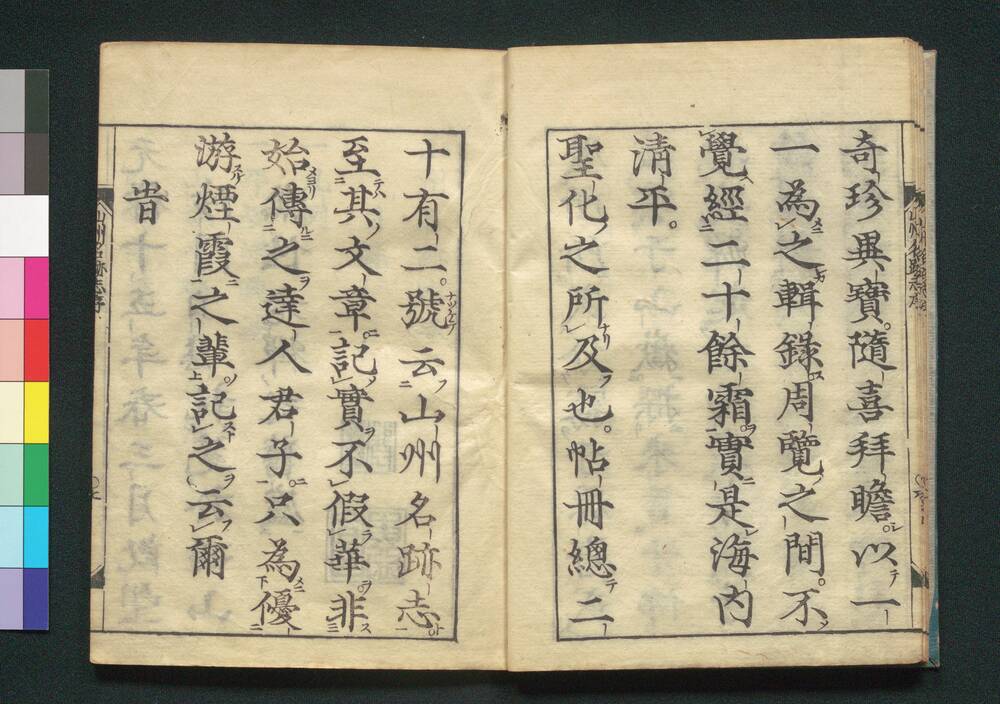 奇珍異寶。隨喜拜瞻。以一
一為之輯錄周覽之間。不
覺經二十餘霜實是海內
清平。
聖化之所及也。帖冊總二
十有二。號云山州名跡志
至其文章記實不假華非
始傳之達人君子只為優
游煙霞之輩記之云爾
旹
山州名跡志序